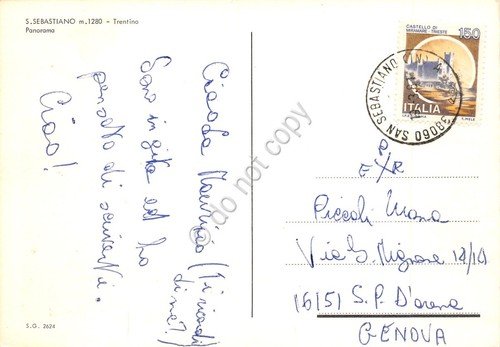 S. SEBASTIANO m. 1280 - Trentino
Panorama
Ciao
Maurizio (Ti ricordi
di me?)
Sono in gita ed ho
pensato di scriverti.
Ciao!
S.G. 2624
CASTELLO DI
MIRAMARE - TRIESTE
150
ITALIA
38060 SAN SEBASTIANO (TN)
EXPR
Piccoli
Via G. Mignone 12/10
16151 S.P. D'arena
GENOVA
do not copy